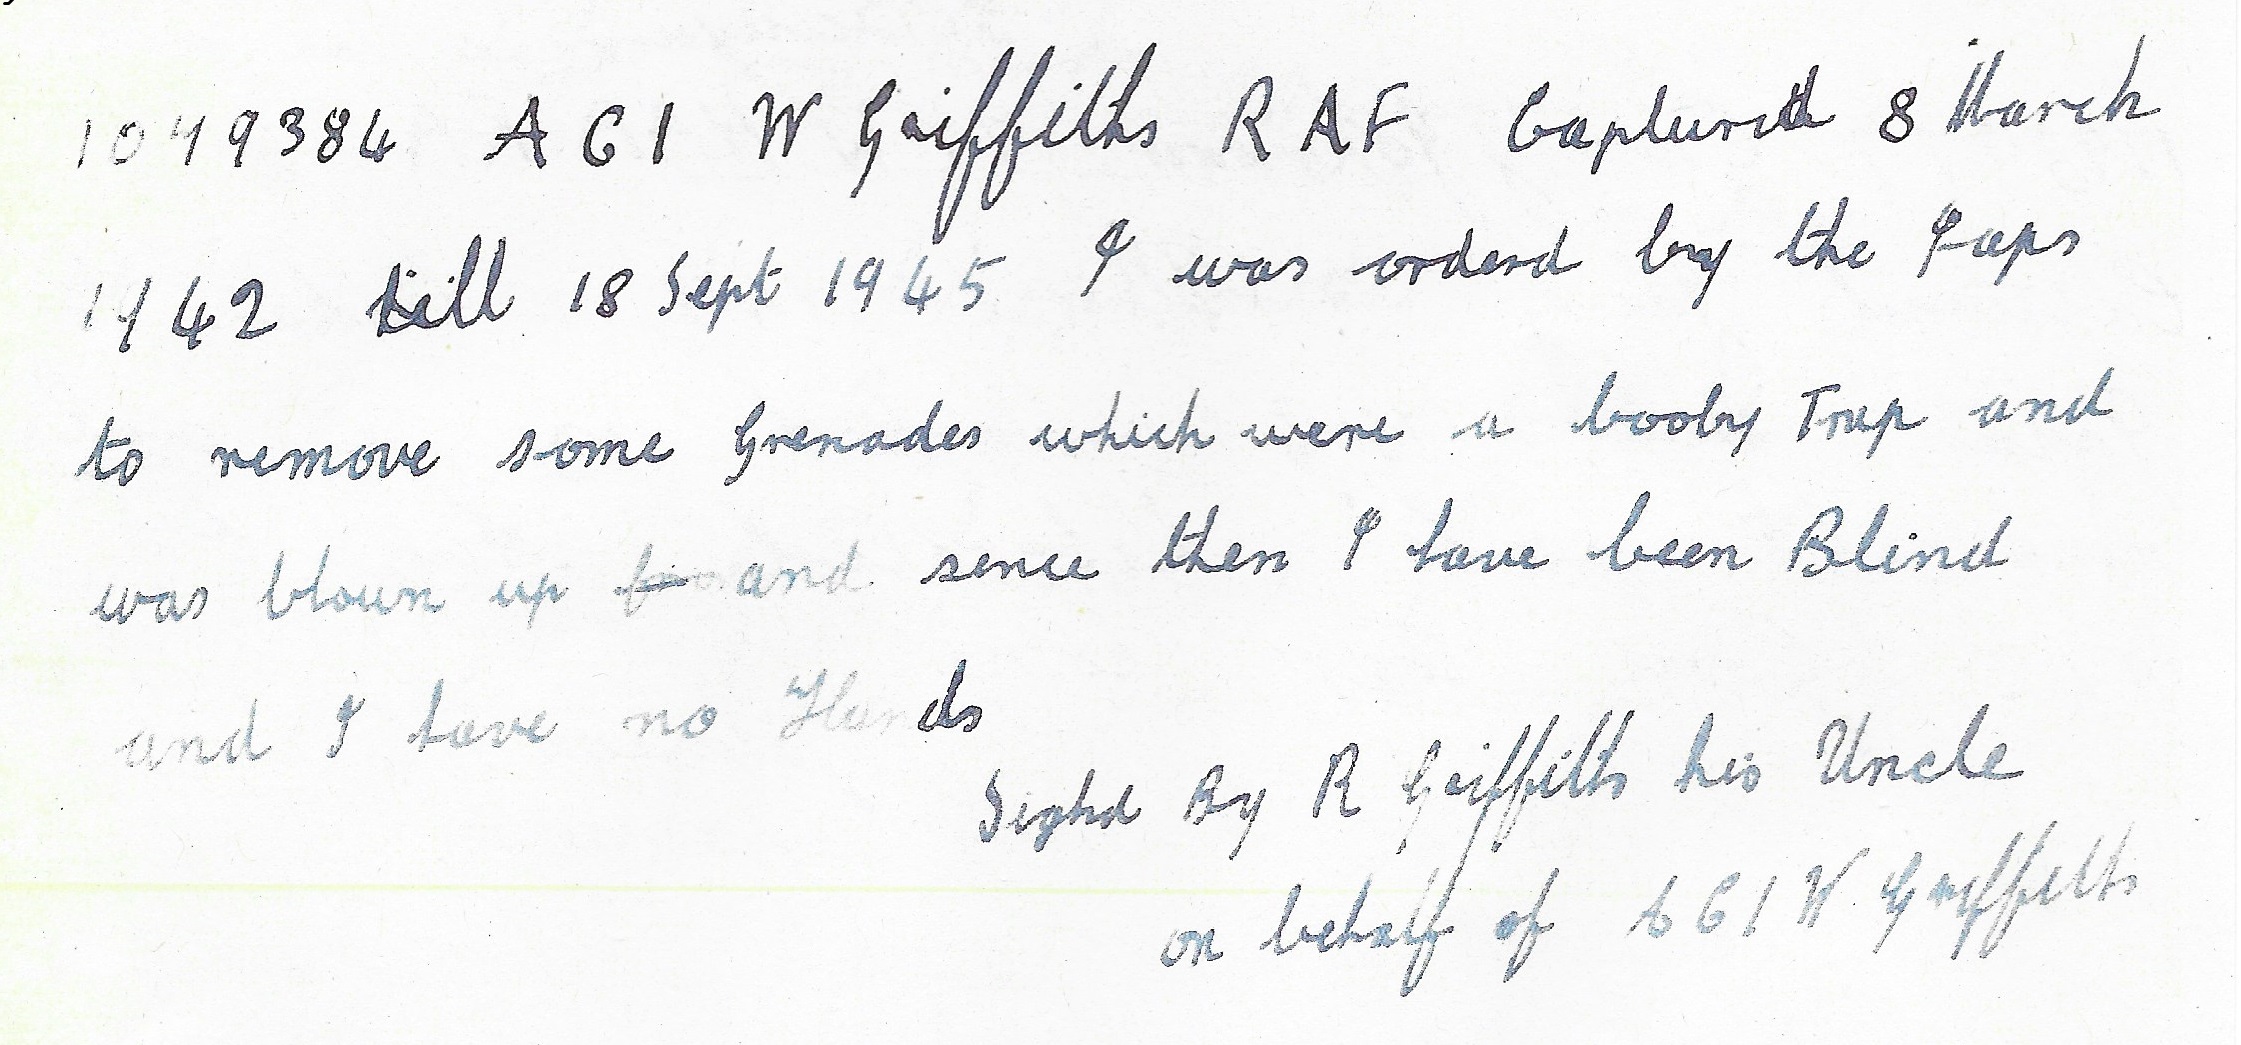 1049384 AC1 W Griffiths RAF Captured 8 March
1942 till 18 Sept 1945 I was orderd by the Japs
to remove some Grenades which were a booby Trap and
was blown up and sence then I have been Blind
and I have no Hands
Signd By R Griffiths his Uncle
on behalf of AC1 W Griffiths